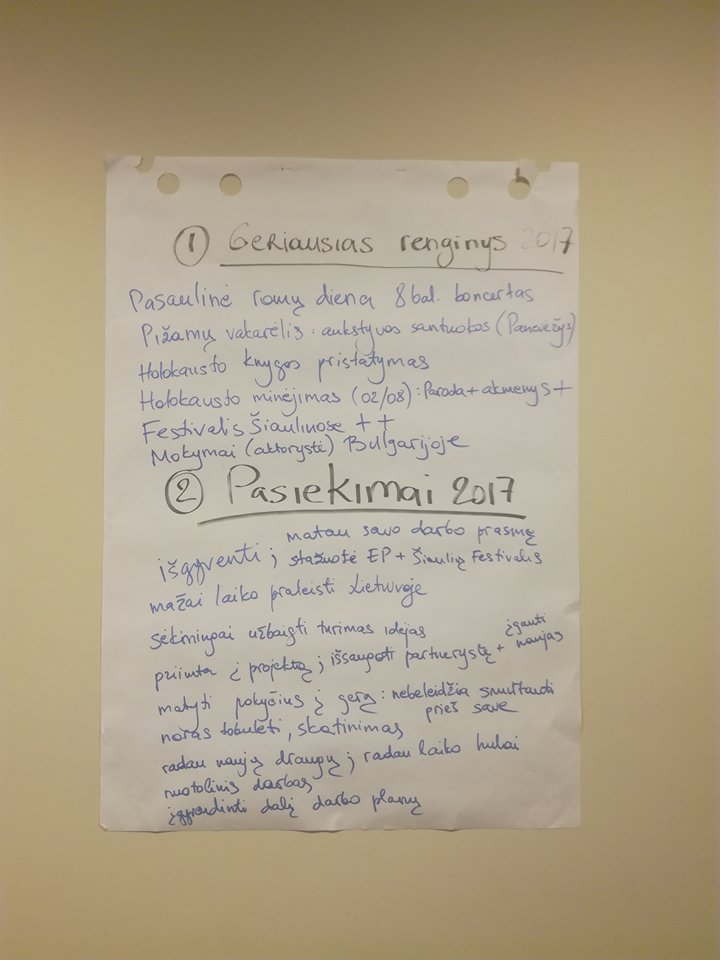 ① Geriausias renginys 2017
Pasaulinė romų diena 8 bal. koncertas
Pižamų vakarėlis: ankstyvos santuokos (Panevėžys)
Holokausto knygos pristatymas
Holokausto minėjimas (02/08): Paroda + akmenys +
Festivalis Šiauliuose + +
Mokymai (aktorystė) Bulgarijoje
② Pasiekimai 2017
matau savo darbo prasmę
išgyventi; stažuotė EP + Šiaulių Festivalis
mažai laiko praleisti Lietuvoje
sėkmingai užbaigti turimas idėjas
įgauti
priimta į projektą; išsaugoti partnerystę + naujas
matyti pokyčius į gerą: nebeleidžia smurtauti
prieš save
noras tobulėti, skatinimas
radau naujų draugų; radau laiko hulai
nuotolinis darbas
įgyvendinti dalį darbo planų